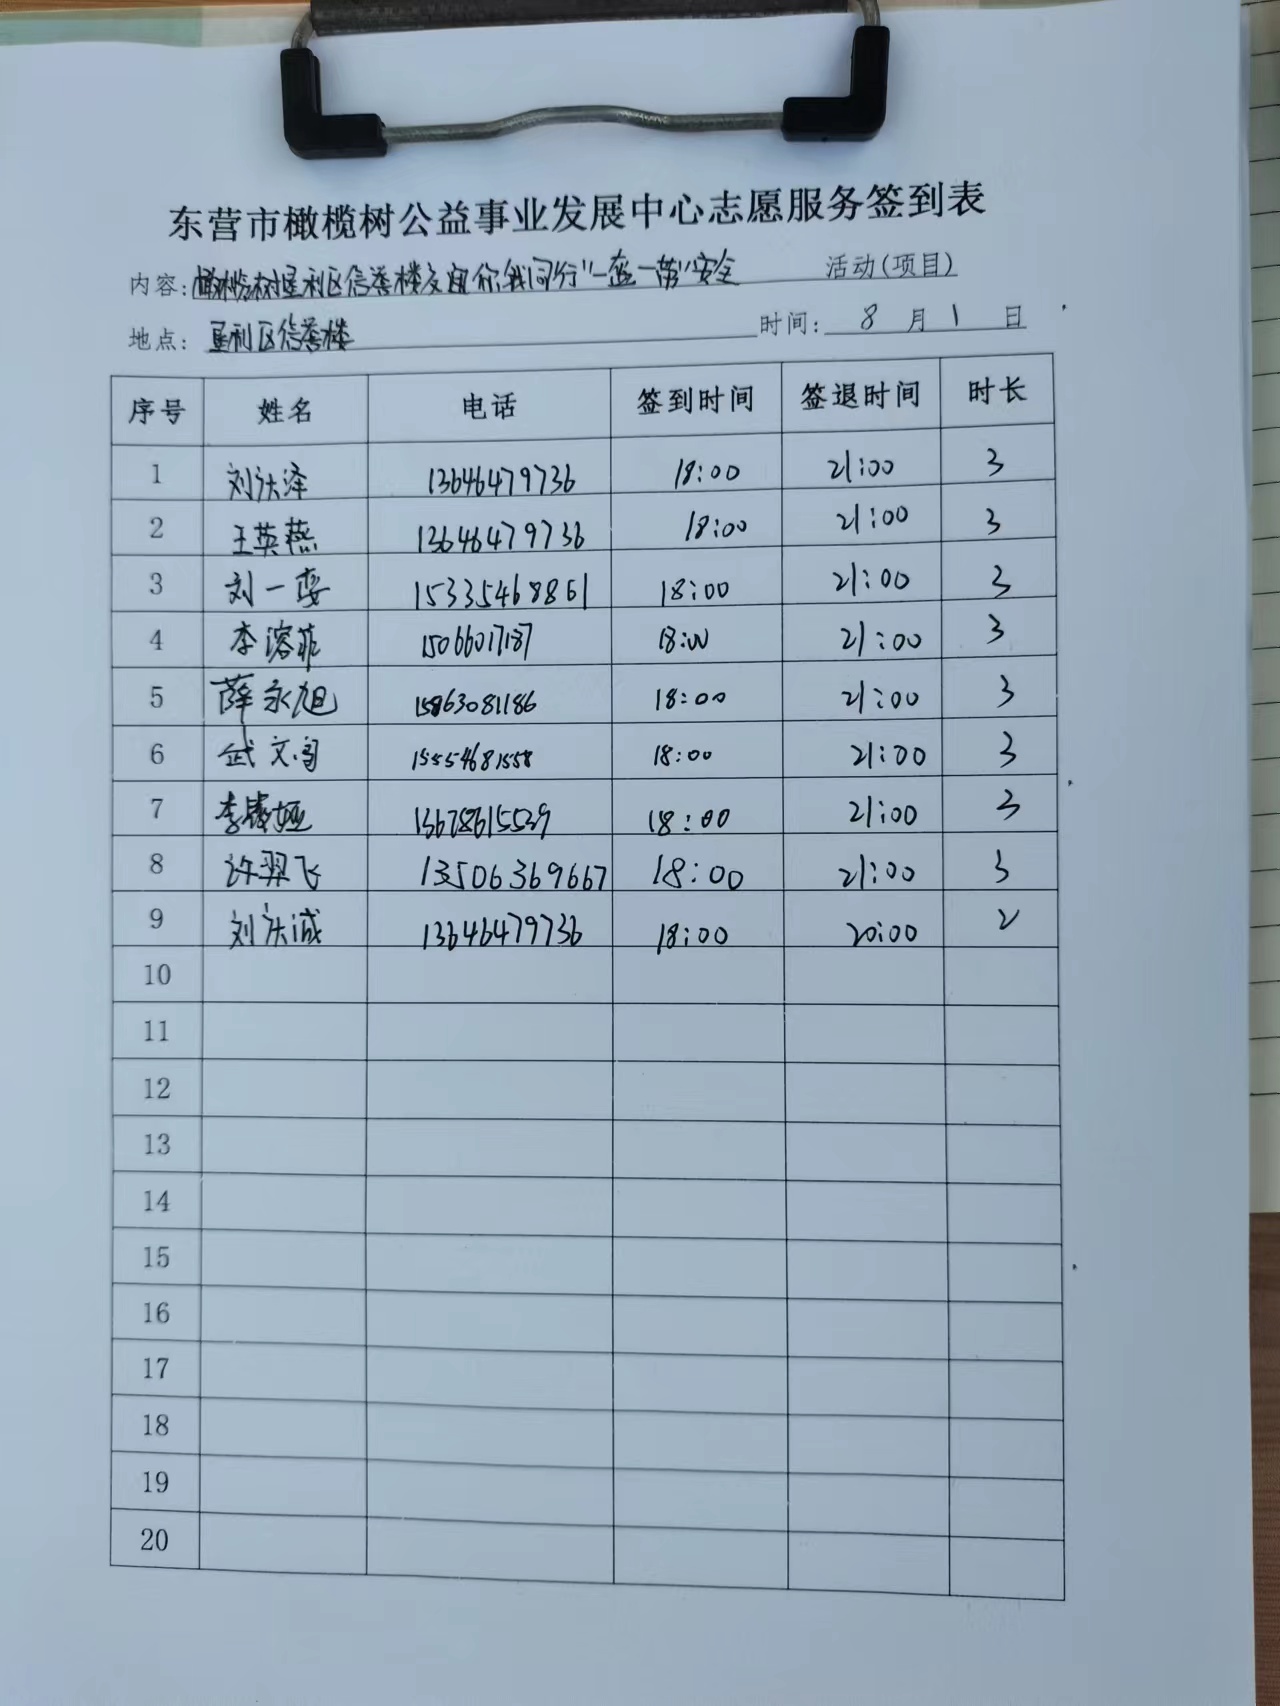 东营市橄榄树公益事业发展中心志愿服务签到表
内容：橄榄树垦利区信誉楼文宜你我同行"一盔一带"安全 活动(项目)
地点：垦利区信誉楼 时间：8月1日
序号 姓名 电话 签到时间 签退时间 时长
1 刘沃泽 13646479736 18:00 21:00 3
2 王英燕 13646479736 18:00 21:00 3
3 刘一 15335468861 18:00 21:00 3
4 李溶菲 15066017187 18:00 21:00 3
5 薛永旭 15863081186 18:00 21:00 3
6 武文 15554681558 18:00 21:00 3
7 李娅 13678615539 18:00 21:00 3
8 许羿飞 13506369667 18:00 21:00 3
9 刘沃诚 13646479736 18:00 20:00 2
10
11
12
13
14
15
16
17
18
19
20